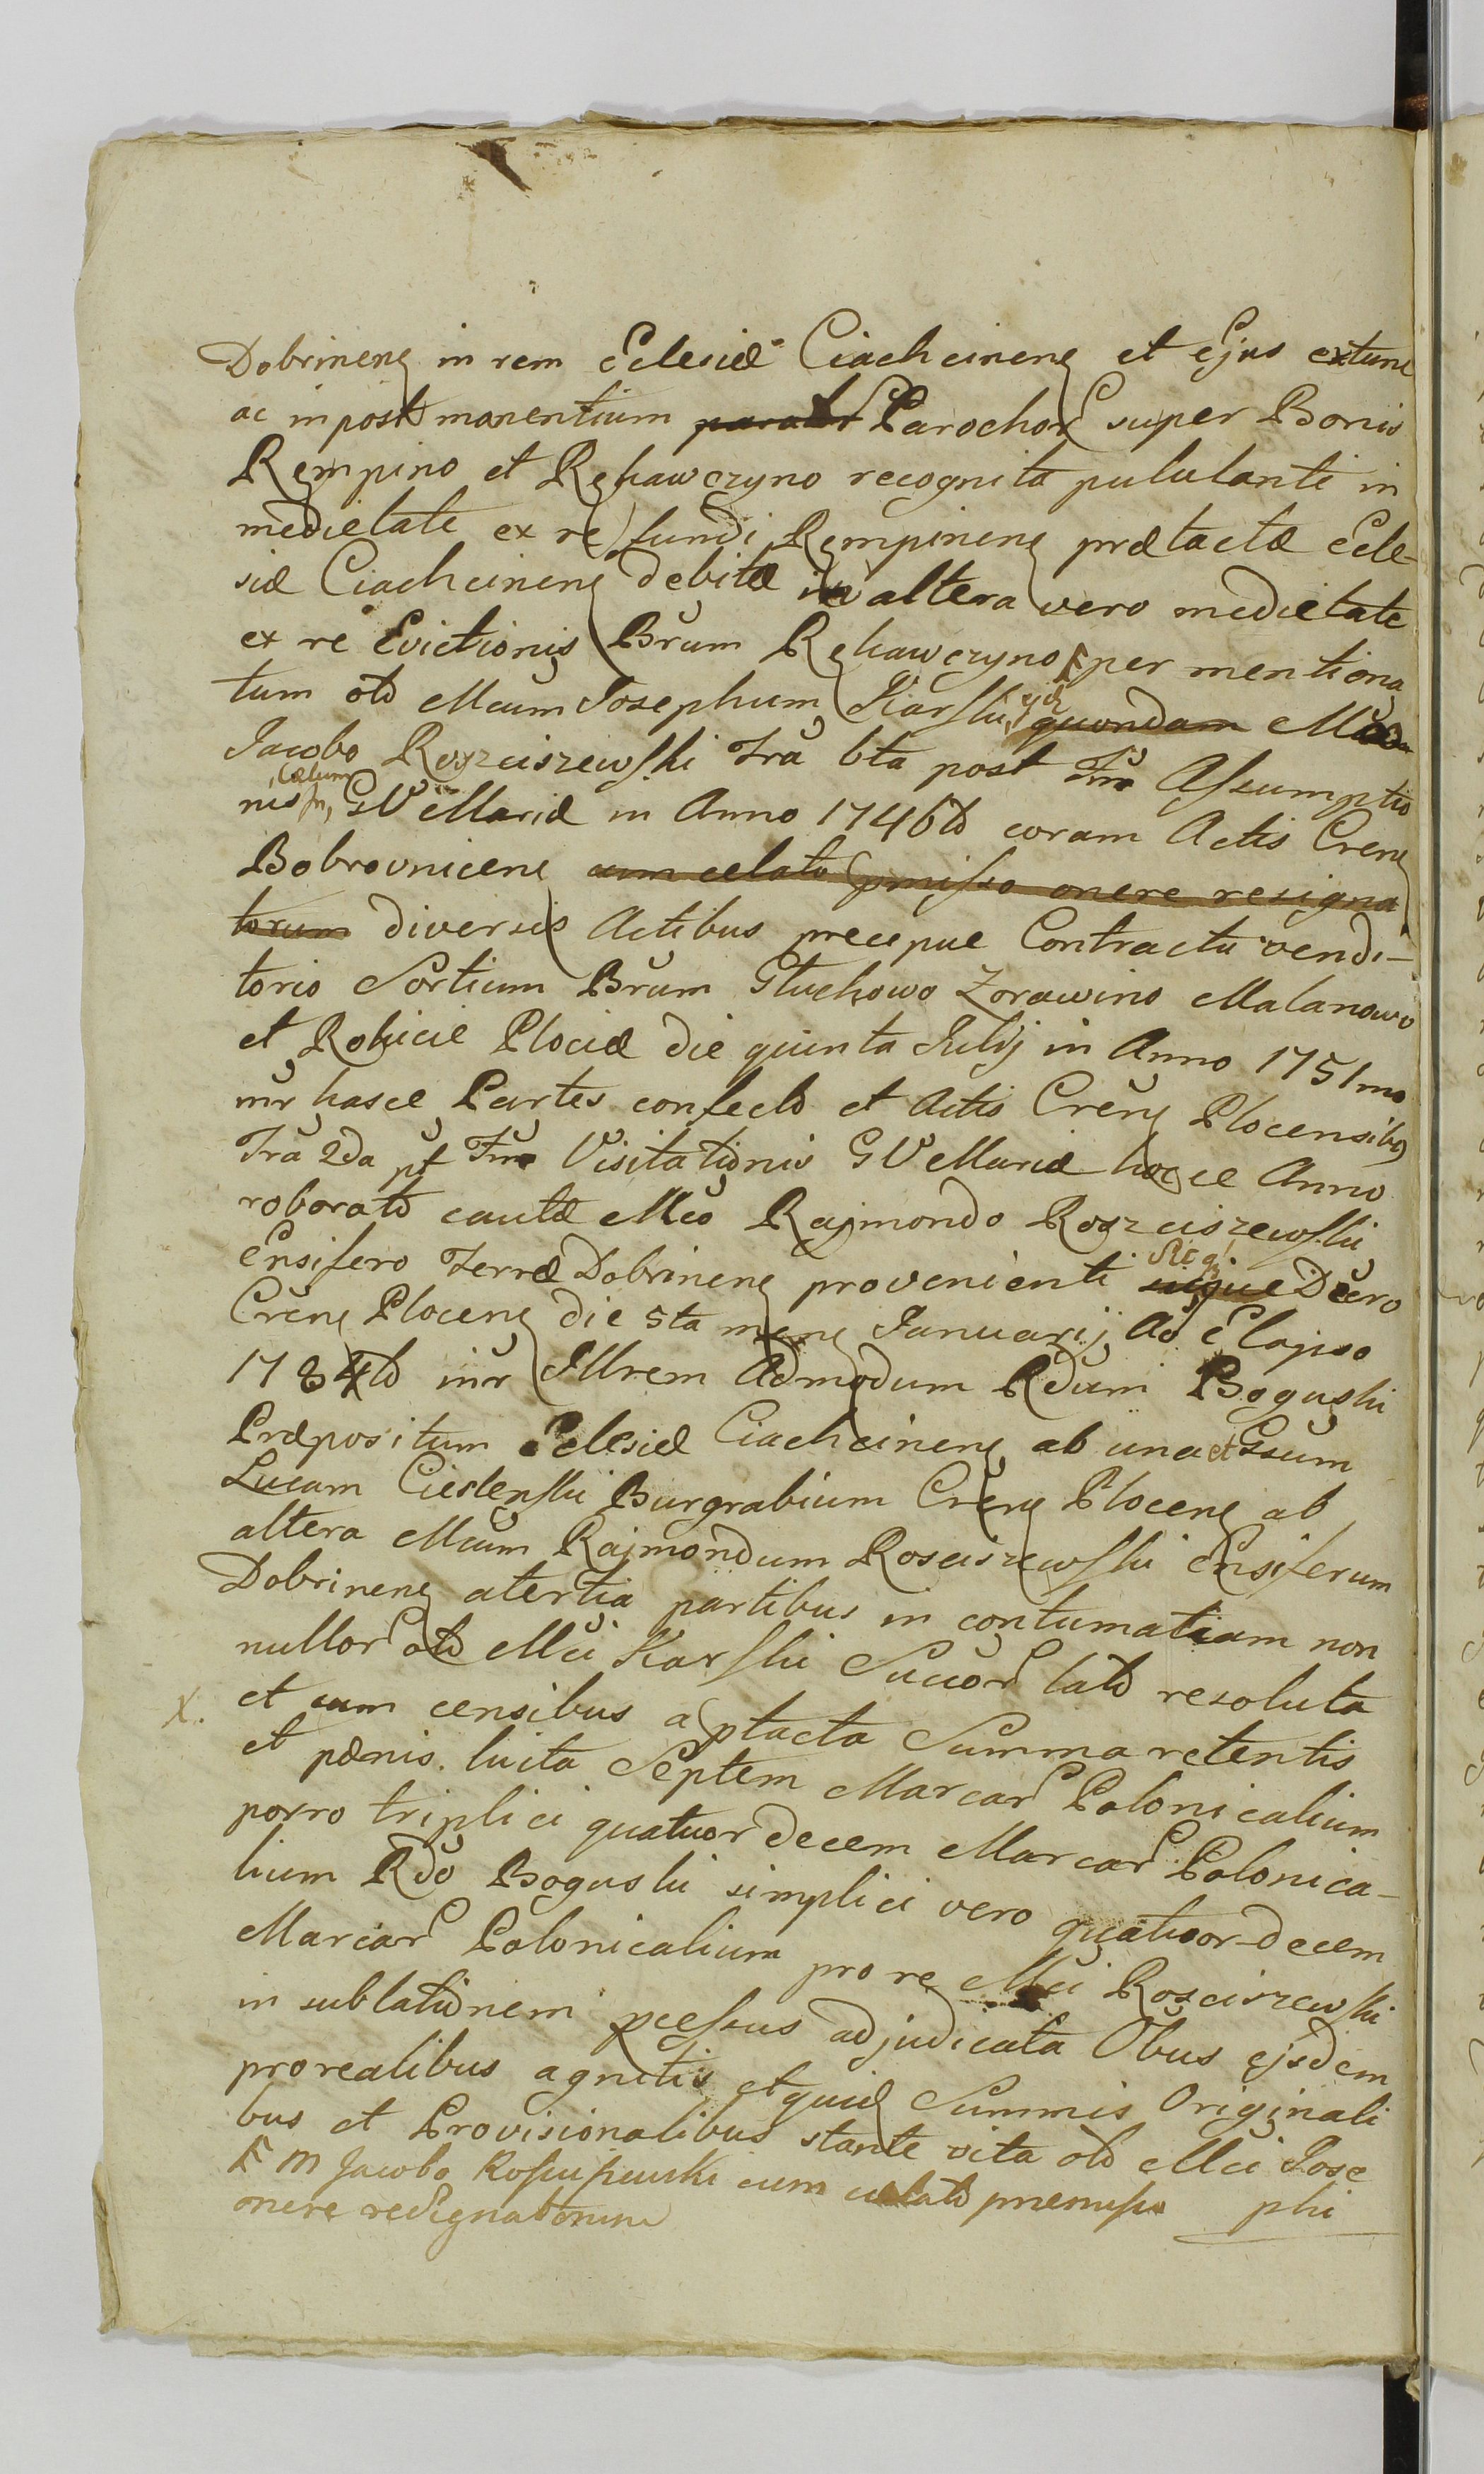 Dobrinenę in rem Eclesiæ Ciachcinenę et Ejus extunc
ac inpost manentium Parochor super Bonis
Rempino et Rękawczyno recognita pululante in
medietate ex re fundi Rempinenę prætactæ Ecle-
siæ Ciachcinenę debitæ in altera vero medietate
ex re Evictionis Brum Rękawczyno F per mentiona
tum olð Mcum Josephum Karski quondam
Jacobo Rosciszewski Fra 6ta post Fm Assumptio
nis in cælum GV Mariæ in Anno 1746tð coram Actis Crenę
Bobrovnicenę cum celato pmisso onere resigna
torum diversis Actibus precipue Contractu vendi-
torio Sortium Brum Głuchowo Zorawino Malanowo
et Rokicie Plociæ die quinta Julij in Anno 1751mo
inr hasce Partes confecto et Actis Crenę Plocensibꝯ
Fra 2da pt Fm Visitationis GV Mariæ hocce Anno
roborato cautæ Mco Rajmondo Rosciszewski
Ensifero Terræ Dobrinenę provenienti Decro
Crenę Plocenę die 5ta menę Januarij Ao Elapso
1784tð inr Illrem Admodum Rdum Boguski
Præpositum Eclesiæ Ciachcinenę ab una et Gsum
Lucam Cieslenski Burgrabium Crenę Plocenę ab
altera Mcum Rajmondum Rosciszewski Ensiferum
Dobrinenę atertia partibus in contumatiam non
nullor olð Mci Karski Succor latð resoluta
X. et cum censibus a ptacta Summa retentis
et pænis luita Septem Marcar Polonicalium
porro triplici quatuordecem Marcar Polonica-
lium Rdo Boguski simplici vero quatuor-decem
Marcar Polonicalium pro re Mci Rosciszewski
in sublationem pcessus adjudicata Obus ejsdem
prorealibus agnitis et quidę Summis Originali
bus et Provisionalibus stante vita olð Mci Jose
phi
F M Jacobo cum celatð premisso
onere resignatorum